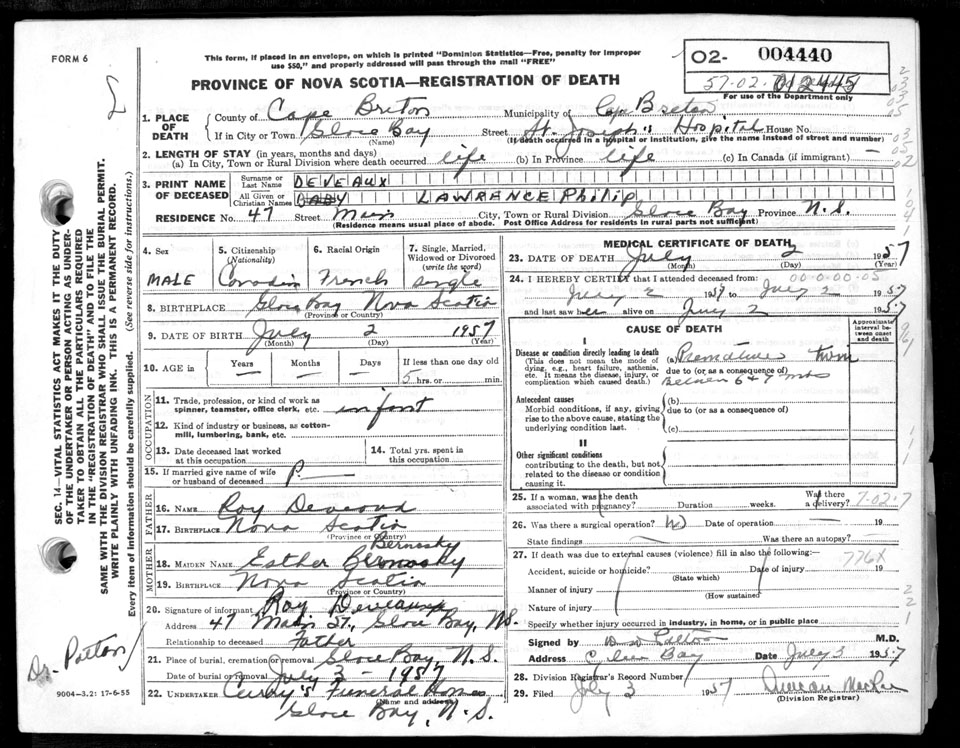 FORM 6
This form, if placed in an envelope, on which is printed "Dominion Statistics—Free, penalty for improper
use $50," and properly addressed will pass through the mail "FREE"
PROVINCE OF NOVA SCOTIA—REGISTRATION OF DEATH
02- 004440
57-02- 012445
For use of the Department only
1. PLACE OF DEATH
County of Cape Breton Municipality of Cape Breton
If in City or Town Glace Bay Street St. Joseph's Hospital House No.
(Name) (If death occurred in a hospital or institution, give the name instead of street and number)
2. LENGTH OF STAY (in years, months and days)
(a) In City, Town or Rural Division where death occurred life (b) In Province life (c) In Canada (if immigrant) —
3. PRINT NAME OF DECEASED
Surname or Last Name DEVEAUX
All Given or Christian Names BABY LAWRENCE Philip
RESIDENCE No. 47 Street Main City, Town or Rural Division Glace Bay Province N.S.
(Residence means usual place of abode. Post Office Address for residents in rural parts not sufficient)
4. Sex MALE
5. Citizenship (Nationality) Canadian
6. Racial Origin French
7. Single, Married, Widowed or Divorced (write the word) single
8. BIRTHPLACE Glace Bay Nova Scotia
(Province or Country)
9. DATE OF BIRTH July 2 1957
(Month) (Day) (Year)
10. AGE in Years — Months — Days — If less than one day old 5 hrs. or min.
OCCUPATION
11. Trade, profession, or kind of work as spinner, teamster, office clerk, etc. infant
12. Kind of industry or business, as cotton-mill, lumbering, bank, etc.
13. Date deceased last worked at this occupation
14. Total yrs. spent in this occupation
15. If married give name of wife or husband of deceased
FATHER
16. NAME Roy
17. BIRTHPLACE Nova Scotia
(Province or Country)
MOTHER
Bernosky
18. MAIDEN NAME Esther Bernosky
19. BIRTHPLACE Nova Scotia
(Province or Country)
20. Signature of informant Roy Deveaux
Address 47 Main St., Glace Bay, N.S.
Relationship to deceased Father
21. Place of burial, cremation or removal Glace Bay N.S.
Date of burial or removal July 3 - 1957
22. UNDERTAKER Curry's Funeral Home
(Name and address)
Glace Bay, N.S.
MEDICAL CERTIFICATE OF DEATH
23. DATE OF DEATH July 2 1957
(Month) (Day) (Year)
24. I HEREBY CERTIFY that I attended deceased from: 00-0-00-05
July 2 1957 to July 2 1957
and last saw h alive on July 2 1957
CAUSE OF DEATH
Approximate interval between onset and death
I
Disease or condition directly leading to death
(This does not mean the mode of dying, e.g., heart failure, asthenia, etc. It means the disease, injury, or complication which caused death.)
(a) Premature twin
due to (or as a consequence of)
Between 6 & 7 mos
Antecedent causes
Morbid conditions, if any, giving rise to the above cause, stating the underlying condition last.
(b)
due to (or as a consequence of)
(c)
II
Other significant conditions
contributing to the death, but not related to the disease or condition causing it.
25. If a woman, was the death associated with pregnancy? Duration weeks. Was there a delivery? 7-02-7
26. Was there a surgical operation? No Date of operation — 19
State findings Was there an autopsy?
27. If death was due to external causes (violence) fill in also the following:— 776X
Accident, suicide or homicide? Date of injury 19
(State which)
Manner of injury
(How sustained)
Nature of injury
Specify whether injury occurred in industry, in home, or in public place
Signed by M.D.
Address Glace Bay Date July 3 1957
28. Division Registrar's Record Number
29. Filed July 3 1957
(Division Registrar)
SEC. 14—VITAL STATISTICS ACT MAKES IT THE DUTY
OF THE UNDERTAKER OR PERSON ACTING AS UNDER-
TAKER TO OBTAIN ALL THE PARTICULARS REQUIRED
IN THE "REGISTRATION OF DEATH" AND TO FILE THE
SAME WITH THE DIVISION REGISTRAR WHO SHALL ISSUE THE BURIAL PERMIT.
WRITE PLAINLY WITH UNFADING INK. THIS IS A PERMANENT RECORD.
Every item of information should be carefully supplied. (See reverse side for instructions.)
Dr. Patton
9004-3.2: 17-6-55